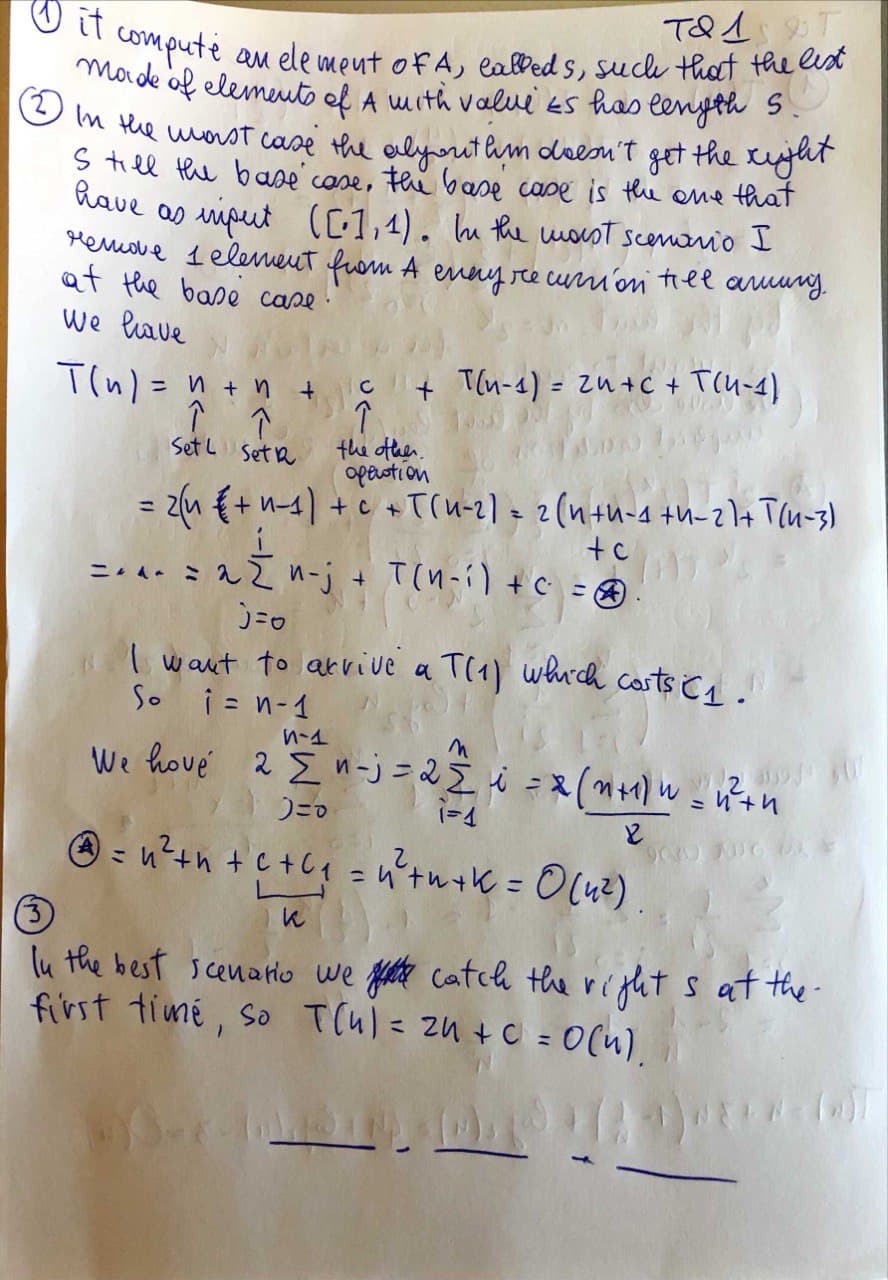 T&1
① it compute an element of A, called s, such that the list
made of elements of A with value ≤s has length s.
② In the worst case the algorithm doesn't get the right
s till the base case. the base case is the one that
have as input ([·],1). In the worst scenario I
remove 1 element from A every recursion till arriving
at the base case.
We have
T(n) = n + n + c + T(n-1) = 2n+c + T(n-1)
↑ ↑ ↑
set L set R the other
operation
= 2(n + n-1) + c + T(n-2) = 2(n+n-1+n-2)+T(n-3)
+c
= .... = 2 ∑_{j=0}^{i} n-j + T(n-i) + c = Ⓐ.
I want to arrive a T(1) which costs C1.
So i = n-1
We have 2 ∑_{j=0}^{n-1} n-j = 2 ∑_{i=1}^{n} i = 2 (n+1) n / 2 = n²+n
Ⓐ = n²+n + c + c₁ = n²+n+k = O(n²).
k
③
In the best scenario we catch the right s at the
first time, so T(n) = 2n + c = O(n).